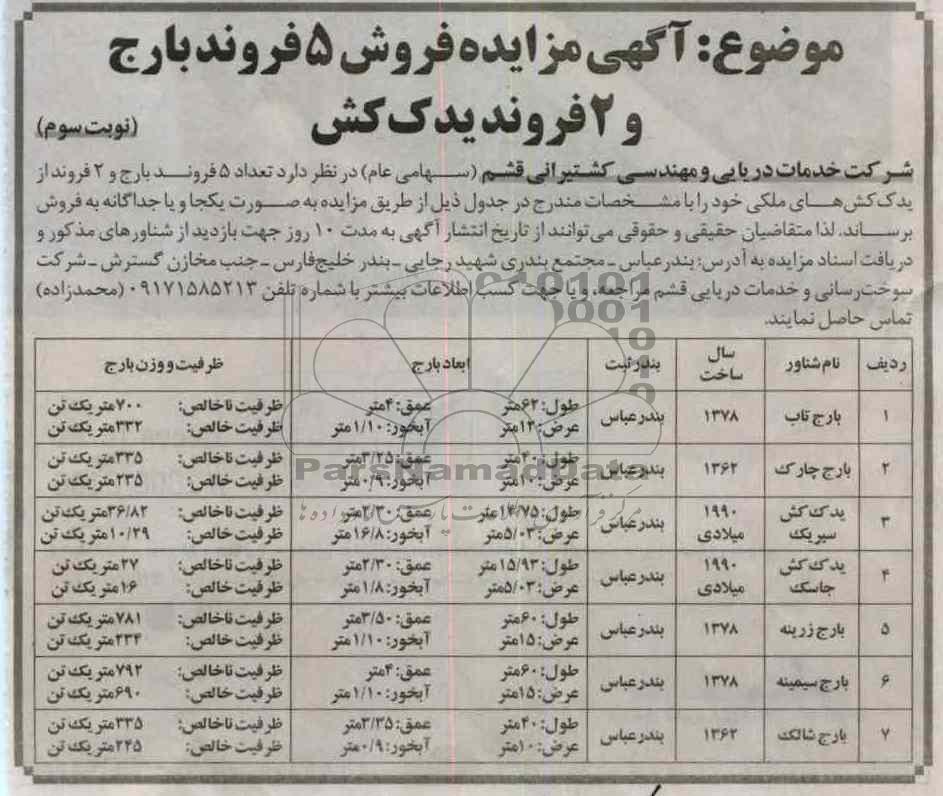 موضوع: آگهی مزایده فروش ۵ فروند بارج
و ۲ فروند یدک کش
(نوبت سوم)
شرکت خدمات دریایی و مهندسی کشتیرانی قشم (سهامی عام) در نظر دارد تعداد ۵ فروند بارج و ۲ فروند از
یدک کش‌های ملکی خود را با مشخصات مندرج در جدول ذیل از طریق مزایده به صورت یکجا و یا جداگانه به فروش
برساند. لذا متقاضیان حقیقی و حقوقی می‌توانند از تاریخ انتشار آگهی به مدت ۱۰ روز جهت بازدید از شناورهای مذکور و
دریافت اسناد مزایده به آدرس: بندرعباس ـ مجتمع بندری شهید رجایی ـ بندر خلیج‌فارس ـ جنب مخازن گسترش ـ شرکت
سوخت‌رسانی و خدمات دریایی قشم مراجعه، و یا جهت کسب اطلاعات بیشتر با شماره تلفن ۰۹۱۷۱۵۸۵۲۱۳ (محمدزاده)
تماس حاصل نمایند.
ردیف نام شناور سال ساخت بندر ثبت ابعاد بارج ظرفیت و وزن بارج
۱ بارج تاب ۱۳۷۸ بندرعباس طول: ۶۲متر عمق: ۴متر ظرفیت ناخالص: ۷۰۰متریک تن
عرض: ۱۲متر آبخور: ۱/۱۰متر ظرفیت خالص: ۳۳۲متریک تن
۲ بارج چارک ۱۳۶۲ بندرعباس طول: ۴۰متر عمق: ۳/۲۵متر ظرفیت ناخالص: ۳۳۵متریک تن
عرض: ۱۰متر آبخور: ۰/۹متر ظرفیت خالص: ۲۳۵متریک تن
۳ یدک کش سیریک ۱۹۹۰ میلادی بندرعباس طول: ۱۴/۷۵متر عمق: ۲/۳۰متر ظرفیت ناخالص: ۳۶/۸۲متریک تن
عرض: ۵/۰۳متر آبخور: ۱۶/۸متر ظرفیت خالص: ۱۰/۲۹متریک تن
۴ یدک کش جاسک ۱۹۹۰ میلادی بندرعباس طول: ۱۵/۹۳متر عمق: ۲/۳۰متر ظرفیت ناخالص: ۲۷متریک تن
عرض: ۵/۰۳متر آبخور: ۱/۸متر ظرفیت خالص: ۱۶متریک تن
۵ بارج زرینه ۱۳۷۸ بندرعباس طول: ۶۰متر عمق: ۳/۵۰متر ظرفیت ناخالص: ۷۸۱متریک تن
عرض: ۱۵متر آبخور: ۱/۱۰متر ظرفیت خالص: ۲۳۴متریک تن
۶ بارج سیمینه ۱۳۷۸ بندرعباس طول: ۶۰متر عمق: ۴متر ظرفیت ناخالص: ۷۹۲متریک تن
عرض: ۱۵متر آبخور: ۱/۱۰متر ظرفیت خالص: ۶۹۰متریک تن
۷ بارج شالک ۱۳۶۲ بندرعباس طول: ۴۰متر عمق: ۳/۳۵متر ظرفیت ناخالص: ۳۳۵متریک تن
عرض: ۱۰متر آبخور: ۰/۹متر ظرفیت خالص: ۲۴۵متریک تن
ParsNamadData